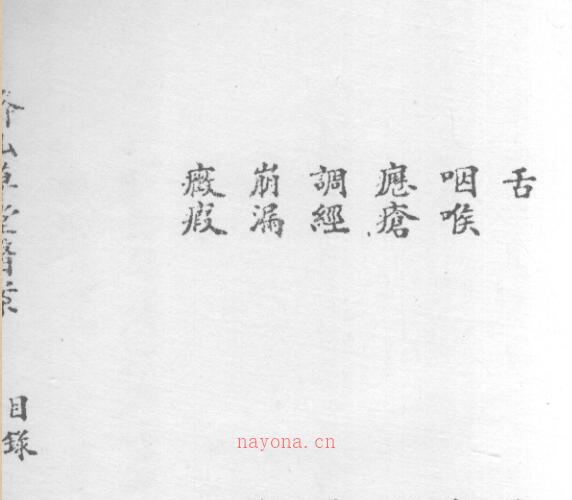 舌
咽喉
瘡
調經
崩漏
癥瘕
山草堂醫案
目錄
nayona.cn